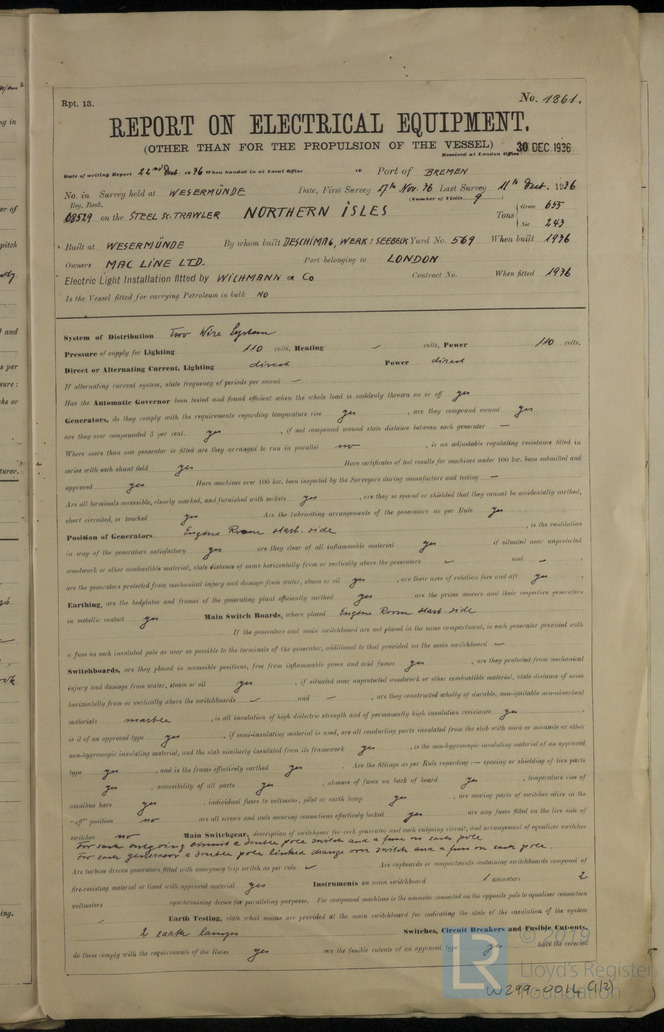 Rpt. 13.
No. 1861.
REPORT ON ELECTRICAL EQUIPMENT.
(OTHER THAN FOR THE PROPULSION OF THE VESSEL)
Received at London Office 30 DEC 1936
Date of writing Report 22nd Dect. 1936 When handed in at Local Office 19 Port of BREMEN
No. in Survey held at WESERMÜNDE Date, First Survey 17th Nov. 36 Last Survey 11th Dect. 1936
Reg. Book. (Number of Visits 9)
68529 on the STEEL Sc. TRAWLER NORTHERN ISLES Tons Gross 655 Net 243
Built at WESERMÜNDE By whom built DESCHIMAG, WERK: SEEBECK Yard No. 569 When built 1936
Owners MAC LINE LTD. Port belonging to LONDON
Electric Light Installation fitted by WICHMANN & Co Contract No. When fitted 1936
Is the Vessel fitted for carrying Petroleum in bulk NO
System of Distribution Two Wire System
Pressure of supply for Lighting 110 volts, Heating - volts, Power 110 volts.
Direct or Alternating Current, Lighting direct Power direct
If alternating current system, state frequency of periods per second —
Has the Automatic Governor been tested and found efficient when the whole load is suddenly thrown on or off yes
Generators, do they comply with the requirements regarding temperature rise yes, are they compound wound yes
are they over compounded 5 per cent. yes, if not compound wound state distance between each generator —
Where more than one generator is fitted are they arranged to run in parallel no, is an adjustable regulating resistance fitted in
series with each shunt field yes Have certificates of test results for machines under 100 kw. been submitted and
approved yes Have machines over 100 kw. been inspected by the Surveyors during manufacture and testing —
Are all terminals accessible, clearly marked, and furnished with sockets yes, are they so spaced or shielded that they cannot be accidentally earthed,
short circuited, or touched yes Are the lubricating arrangements of the generators as per Rule yes
Position of Generators Engine Room starb. side, is the ventilation
in way of the generators satisfactory yes are they clear of all inflammable material yes if situated near unprotected
woodwork or other combustible material, state distance of same horizontally from or vertically above the generators - and -
are the generators protected from mechanical injury and damage from water, steam or oil yes, are their axes of rotation fore and aft yes
Earthing, are the bedplates and frames of the generating plant efficiently earthed yes are the prime movers and their respective generators
in metallic contact yes Main Switch Boards, where placed Engine Room starb. side
If the generators and main switchboard are not placed in the same compartment, is each generator provided with
a fuse on each insulated pole as near as possible to the terminals of the generator, additional to that provided on the main switchboard -
Switchboards, are they placed in accessible positions, free from inflammable gases and acid fumes yes, are they protected from mechanical
injury and damage from water, steam or oil yes, if situated near unprotected woodwork or other combustible material, state distance of same
horizontally from or vertically above the switchboards - and -, are they constructed wholly of durable, non-ignitable non-absorbent
materials marble, is all insulation of high dielectric strength and of permanently high insulation resistance yes
is it of an approved type yes, if semi-insulating material is used, are all conducting parts insulated from the slab with mica or micanite or other
non-hygroscopic insulating material, and the slab similarly insulated from its framework yes, is the non-hygroscopic insulating material of an approved
type yes, and is the frame effectively earthed yes Are the fittings as per Rule regarding:— spacing or shielding of live parts
yes, accessibility of all parts yes, absence of fuses on back of board yes, temperature rise of
omnibus bars yes, individual fuses to voltmeter, pilot or earth lamp yes, are moving parts of switches alive in the
"off" position no are all screws and nuts securing connections effectively locked yes are any fuses fitted on the live side of
switches no Main Switchgear, description of switchgear for each generator and each outgoing circuit, and arrangement of equalizer switches
For each outgoing circuit a double pole switch and a fuse on each pole
For each generator a double pole linked change over switch and a fuse on each pole.
Are turbine driven generators fitted with emergency trip switch as per rule - Are cupboards or compartments containing switchboards composed of
fire-resisting material or lined with approved material yes Instruments on main switchboard 1 ammeters 2
voltmeters synchronising device for paralleling purposes. For compound machines is the ammeter connected on the opposite pole to equalizer connection
- Earth Testing, state what means are provided at the main switchboard for indicating the state of the insulation of the system
2 earth lamps Switches, Circuit Breakers and Fusible Cut-outs,
do these comply with the requirements of the Rules yes are the fusible cutouts of an approved type yes have the reversed
© 2019
LR
Lloyd's Register
Foundation
W299-0014 (1/2)